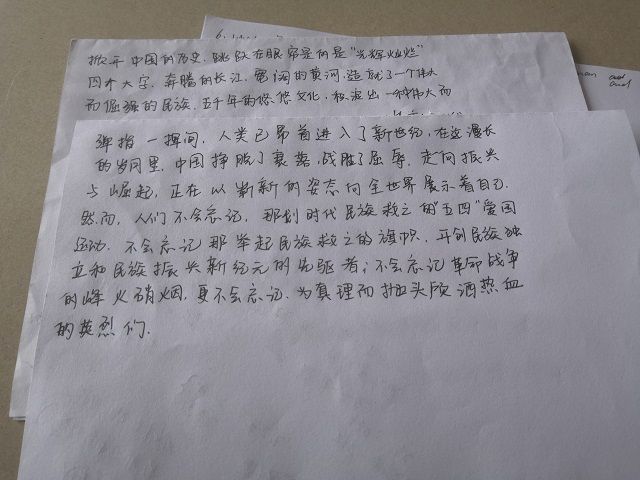 掀开中国的历史,跳跃在眼帘是的是"光辉灿烂"
四个大字.奔腾的长江,宽阔的黄河.造就了一个伟大
而倔强的民族.五千年的悠悠文化,积淀出一种伟大而
弹指一挥间,人类已昂首进入了新世纪,在这漫长
的岁月里,中国挣脱了衰落,战胜了屈辱,走向振兴
与崛起,正在以崭新的姿态向全世界展示着自己.
然而,人们不会忘记,那划时代民族救亡的"五四"爱国
运动.不会忘记那举起民族救亡的旗帜,开创民族独
立和民族振兴新纪元的先驱者;不会忘记革命战争
的峰火硝烟,更不会忘记.为真理而抛头颅洒热血
的英烈们.